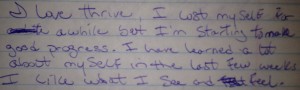 I love thrive, I lost myself for
a while but I'm starting to make
good progress. I have learned a lot
about myself in the last few weeks
I like what I see and feel.